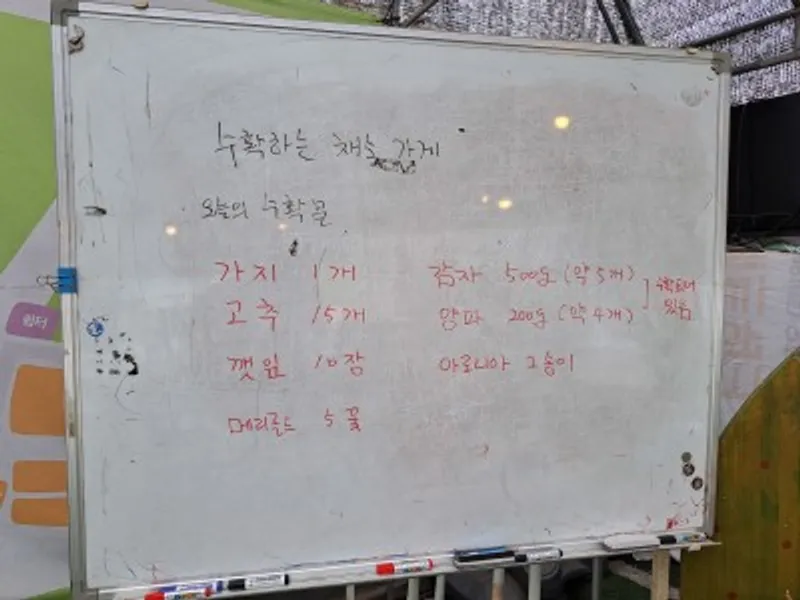 수확하는 채소 가게
오늘의 수확물
가지 1개
고추 15개
깻잎 10장
메리골드 5꽃
감자 500g (약 5개)
양파 200g (약 4개)
수확되어
있음
아로니아 2송이
쉼터